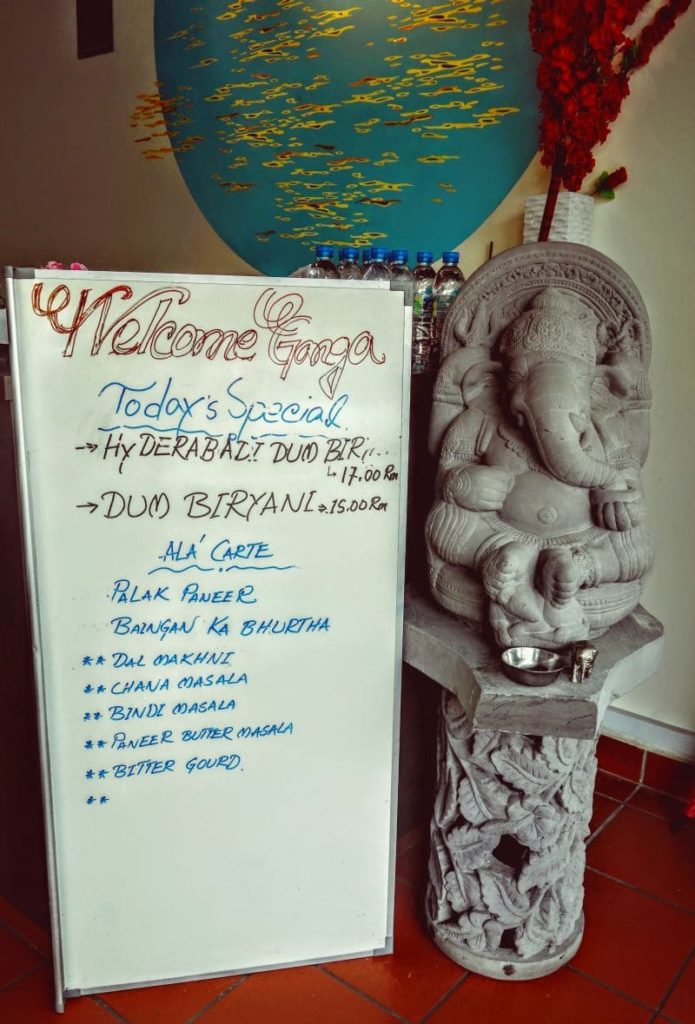 Welcome Ganga
Today's Special
→ HyDERABADI DUM BIR...
↳ 17.00 Rm
→ DUM BIRYANI → 15.00 Rm
ALÁ CARTE
PALAK PANEER
BAINGAN KA BHURTHA
** DAL MAKHNI
** CHANA MASALA
** BINDI MASALA
** PANEER BUTTER MASALA
** BITTER GOURD.
**